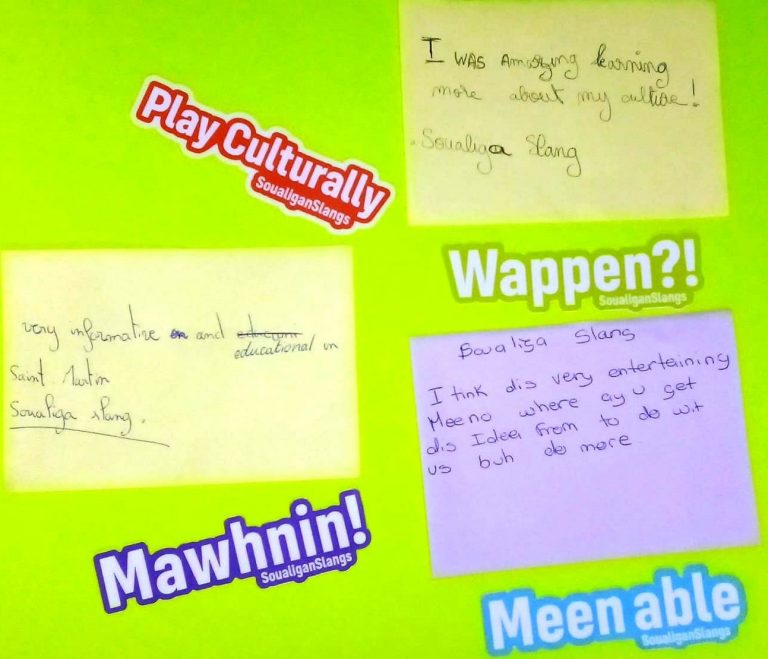 I WAS Amazing learning
more about my culture!
Soualiga Slang
Play Culturally
SoualiganSlangs
Wappen?!
SoualiganSlangs
very informative and
educational in
Saint Martin
Soualiga slang.
Soualiga Slang
I tink dis very entertaining
Meeno where ay u get
dis Ideer from to do wit
us buh do more
Mawhnin!
SoualiganSlangs
Meen able
SoualiganSlangs